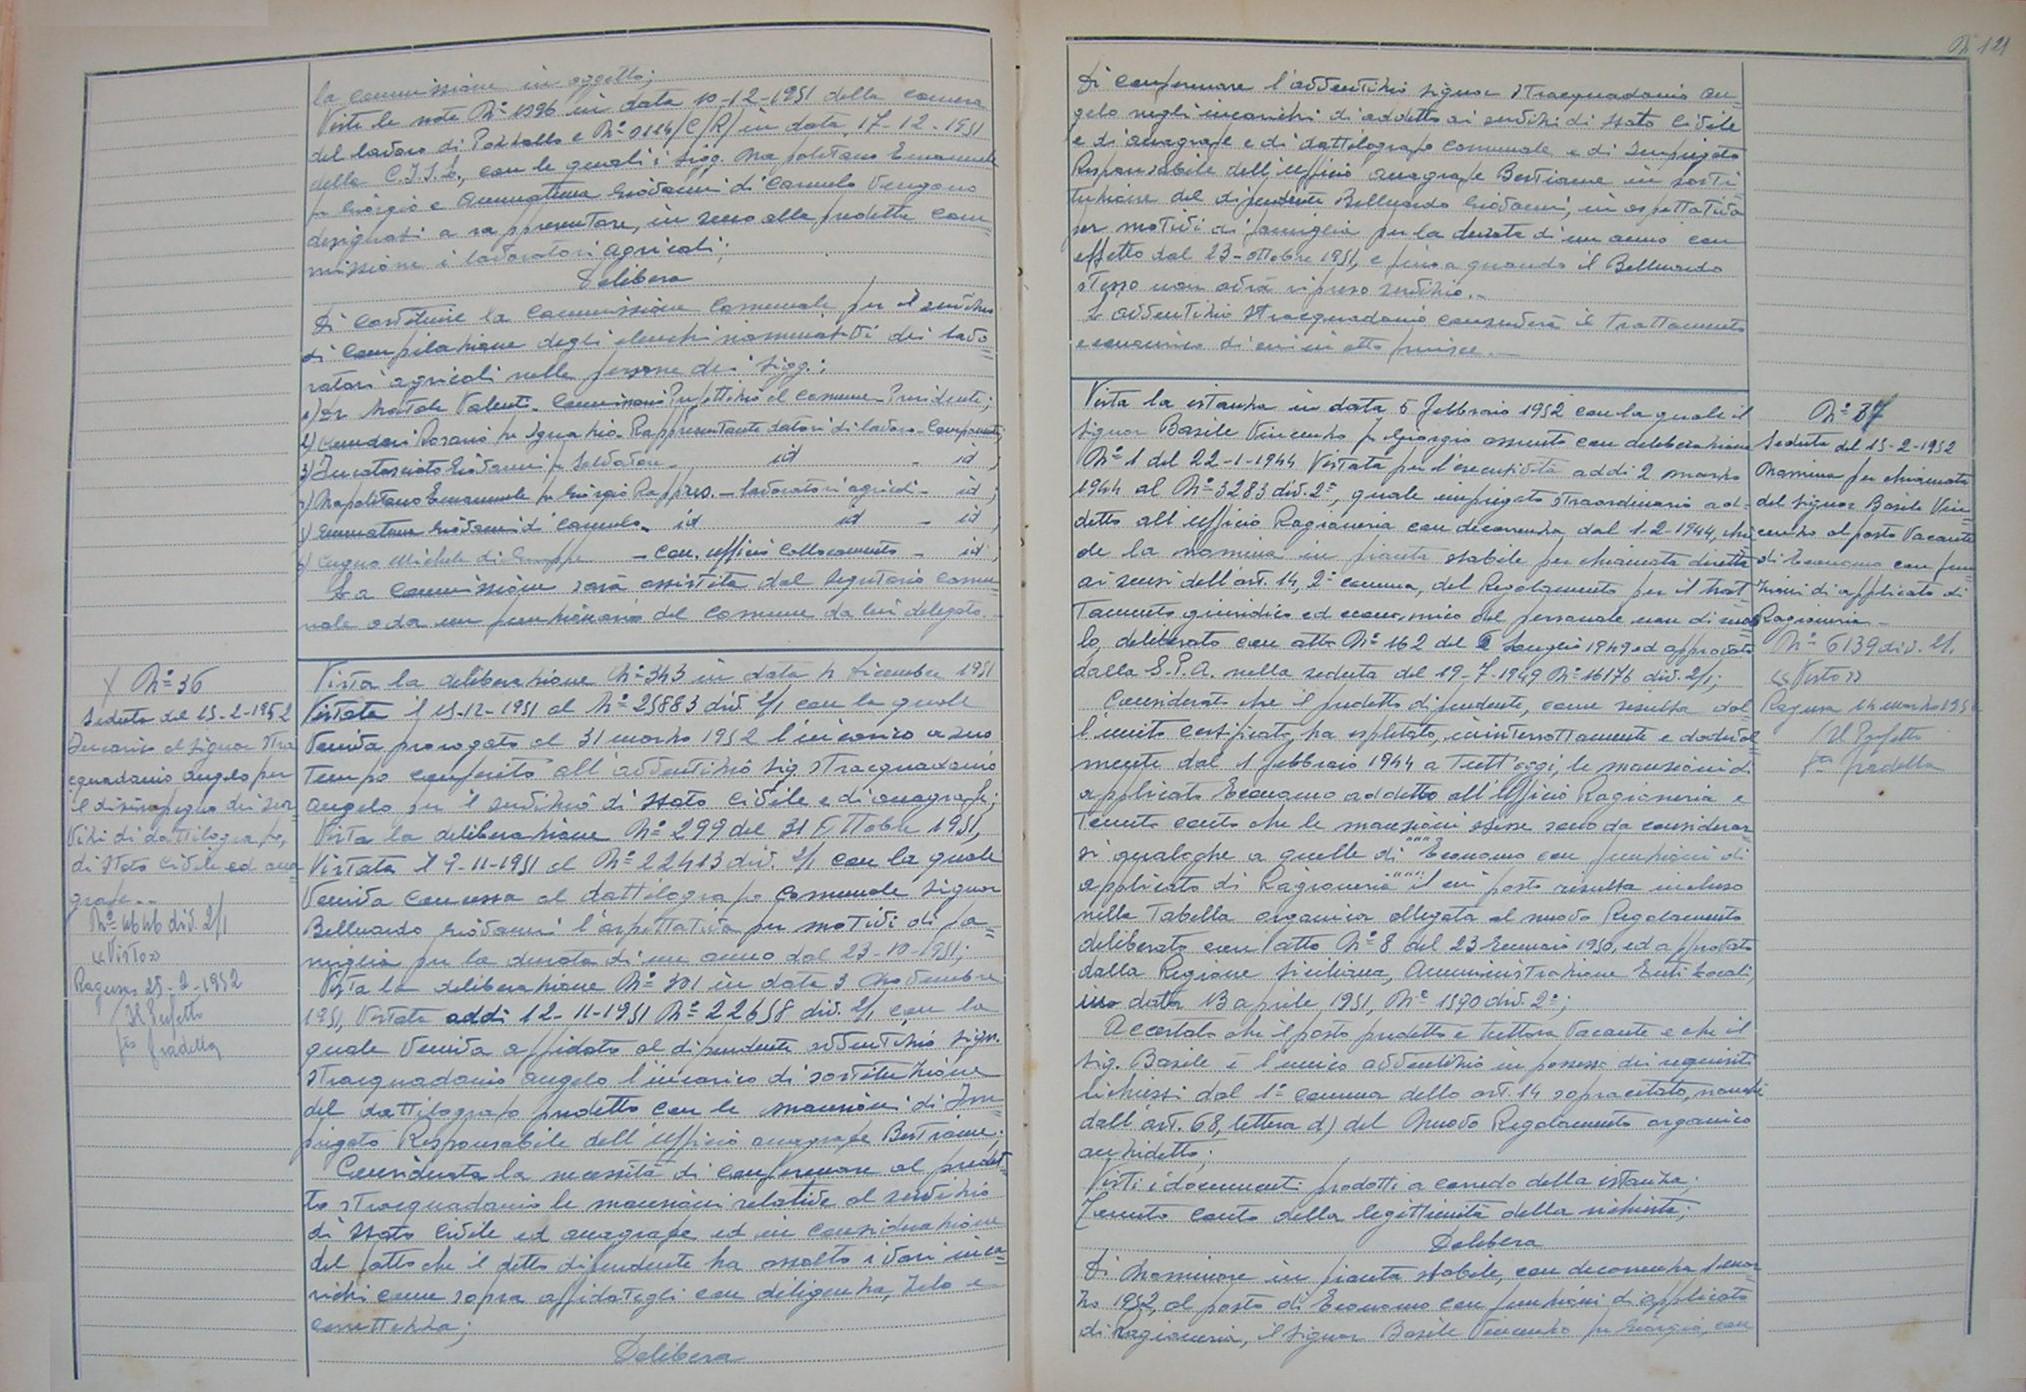 la commissione in oggetto;
Viste le note N° 1096 in data 10-12-1951 della camera
del lavoro di Pozzallo e N° 2114/C/R/ in data 17-12-1951
della C.I.S.L., con le quali i sigg. Napolitano Emanuele
fu Giorgio e Ammatuna Giovanni di Carmelo vengono
designati a rappresentare, in seno alla predetta com=
missione i lavoratori agricoli;
Delibera
Di costituire la Commissione Comunale per il servizio
di compilazione degli elenchi nominativi dei lavo=
ratori agricoli nelle persone dei Sigg.:
1) Dr Natale Valenti - Commissario Prefettizio al Comune - Presidente;
2) Rosario fu Ignazio - Rappresentante datori di lavoro - Componente;
3) Giovanni fu Salvatore - id - id ;
4) Napolitano Emanuele fu Giorgio Rappres. - lavoratori agricoli - id ;
5) Ammatuna Giovanni di Carmelo - id id - id ;
6) Cugno Michele di Giuseppe - Con. ufficio Collocamento - id ;
La Commissione sarà assistita dal Segretario Comu
nale o da un funzionario del Comune da lui delegato.
X N° 36
Seduta del 15-2-1952
Incarico al Signor Stra
cquadanio Angelo per
il disimpegno dei ser
vizi di dattilografo,
di Stato Civile ed ana=
grafe..
N° 4646 div. 2/1
"Visto"
Ragusa 25-2-1952
Il Prefetto
fto Gradella
Vista la deliberazione N° 343 in data 4 Dicembre 1951
Vistata il 15-12-1951 al N° 25883 div. 2/1 con la quale
Veniva prorogato al 31 marzo 1952 l'incarico a suo
tempo conferito all'avventizio Sig. Stracquadanio
Angelo per il servizio di Stato Civile e di anagrafe;
Vista la deliberazione N° 299 del 31 Ottobre 1951,
Vistata il 9-11-1951 al N° 22413 div. 2/1 con la quale
Veniva concessa al dattilografo Comunale Signor
Belluardo Giovanni l'aspettativa per motivi di fa=
miglia per la durata di un anno dal 23-10-1951;
Vista la deliberazione N° 301 in data 3 Novembre
1951, Vistata addì 12-11-1951 N° 22658 div. 2/1 con la
quale Veniva affidato al dipendente avventizio Sign.
Stracquadanio Angelo l'incarico di sostituzione
del dattilografo predetto con le mansioni di Im
piegato Responsabile dell'Ufficio anagrafe Bestiame;
Considerata la necessità di confermare al predet=
to Stracquadanio le mansioni relative al servizio
di Stato Civile ed anagrafe ed in considerazione
del fatto che il detto dipendente ha assolto i vari inca=
richi come sopra affidatigli con diligenza, zelo e
correttezza;
Delibera
N° 121
Di confermare l'avventizio Signor Stracquadanio An=
gelo negli incarichi di addetto ai servizi di Stato Civile
e di anagrafe e di dattilografo comunale e di Impiegato
Responsabile dell'Ufficio Anagrafe Bestiame in sosti=
tuzione del dipendente Belluardo Giovanni, in aspettativa
per motivi di famiglia per la durata di un anno con
effetto dal 23-ottobre 1951, e fino a quando il Belluardo
stesso non avrà ripreso servizio.-
L'avventizio Stracquadanio conserverà il trattamento
economico di cui in atto fruisce.-
Vista la istanza in data 5 Febbraio 1952 con la quale il
Signor Basile Vincenzo fu Giorgio assunto con deliberazione
N° 1 del 22-1-1944 Vistata per l'esecutività addì 2 marzo
1944 al N° 3283 div. 2ª, quale impiegato straordinario ad=
detto all'Ufficio Ragioneria con decorrenza dal 1-2-1944, chie
de la nomina in pianta stabile per chiamata diretta
ai sensi dell'art. 14, 2° comma, del Regolamento per il trat=
tamento giuridico ed economico del personale non di ruo
lo, deliberato con atto N° 162 del Luglio 1949 ed approvato
dalla G.P.A. nella seduta del 19-7-1949 N° 16176 div. 2/1;
Considerato che il predetto dipendente, come risulta dal=
l'unito certificato, ha espletato, ininterrottamente e
mente dal 1 febbraio 1944 a tutt'oggi, le mansioni di
applicato Economo addetto all'Ufficio Ragioneria e
tenuto conto che le mansioni stesse sono da considerar
si analoghe a quelle di "Economo con funzioni di
applicato di Ragioneria" il cui posto risulta incluso
nella Tabella organica allegata al nuovo Regolamento
deliberato con atto N° 8 del 23 Gennaio 1950, ed approvato
dalla Regione Siciliana, Amministrazione Enti Locali,
in data 13 aprile 1951, N° 1590 div. 2ª;
Accertato che il posto predetto è tuttora vacante e che il
Sig. Basile è l'unico avventizio in possesso dei requisiti
richiesti dal 1° comma dello art. 14 sopracitato, nonché
dall'art. 68, lettera d) del Nuovo Regolamento organico
anzidetto;
Visti i documenti prodotti a corredo della istanza;
Tenuto conto della legittimità della richiesta;
Delibera
Di Nominare in pianta stabile, con decorrenza 1° mar
zo 1952, al posto di Economo con funzioni di applicato
di Ragioneria, il Signor Basile Vincenzo fu Giorgio, con
N° 37
Seduta del 15-2-1952
Nomina per chiamata
del Signor Basile Vin=
cenzo al posto Vacante
di Economo con fun
zioni di applicato di
Ragioneria -
N° 6139 div. 2/1.
"Visto"
Ragusa 14 marzo 195
Il Prefetto
fto Gradella